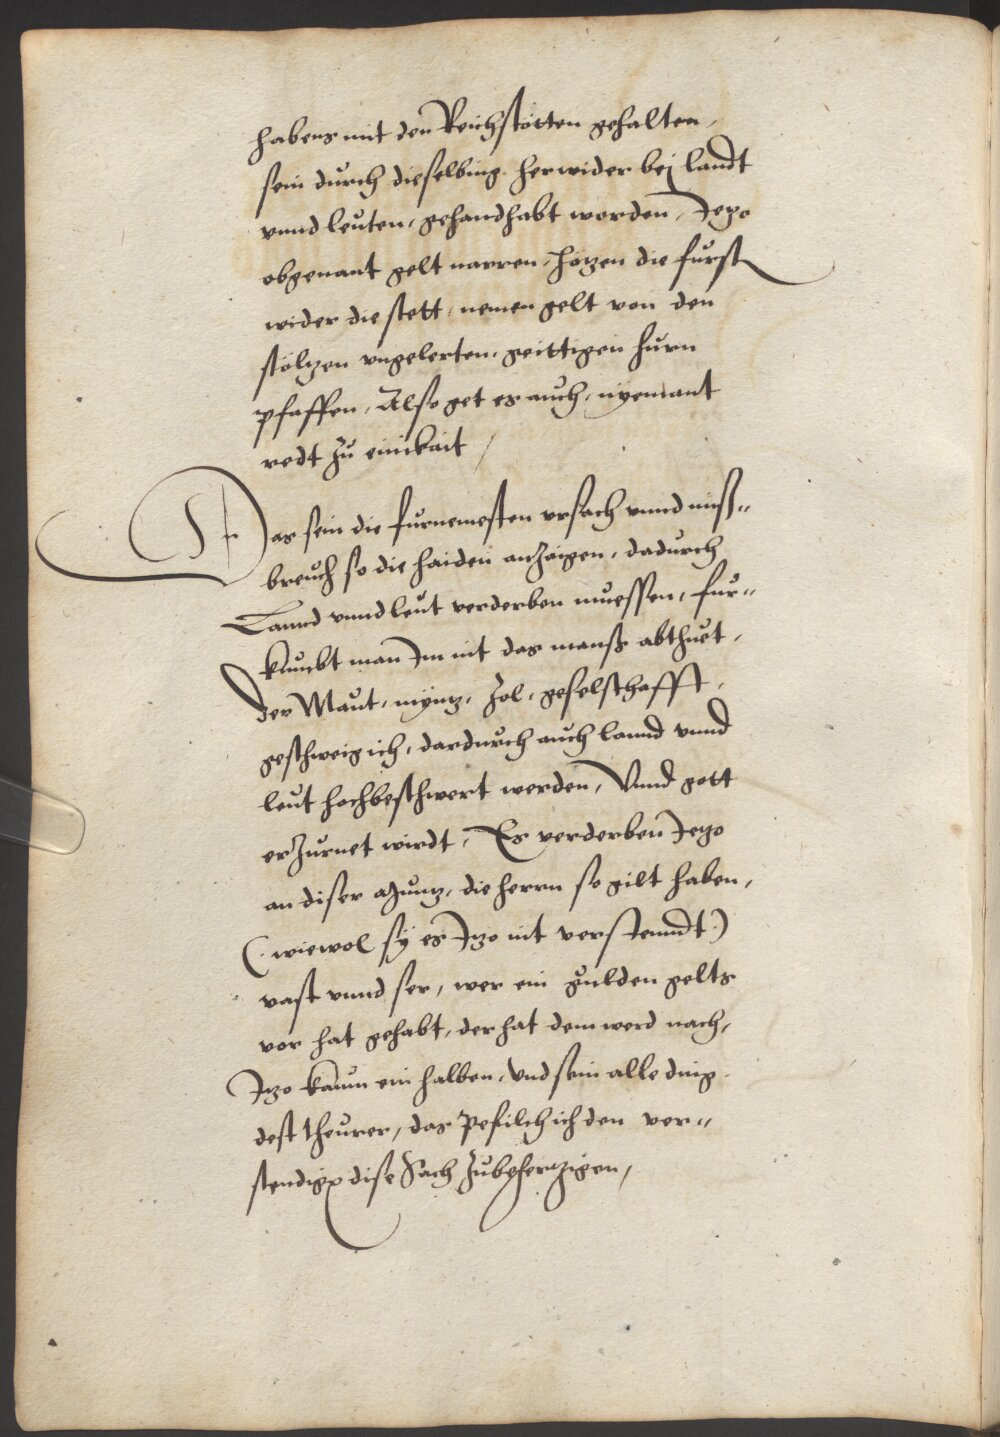 habens mit den Reichstötten gehalten,
sein durch dieselbing herwider bej landt
vnnd leuten, gehandhabt worden, Jezo
obgenant gelt narren, hözen die furst
wider die stett, nemen gelt von den
stöltzen vngelerten, geittigen hurn
pfaffen, Also get es auch, nyemant
redt zu ainikait /
Das sein die furnemesten vrsach vnnd miß-
breuch so die haiden anzaigen, dadurch
Lannd vnnd leut verderben muessen, fur-
kumbt man Im nit das manß abthuet,
der Maut, myntz, zol, geselschafft,
geschweig ich, dardurch auch lannd vnnd
leut hochbeschwert werden, Vnnd gott
erzurnet wirdt, Es verderben Jezo
an diser Muntz, die herrn so gilt haben,
(wiewol sy es Izo nit verstenndt)
vast vnnd ser, wer ein gulden gelts
vor hat gehabt, der hat dem werd nach,
Izo kaum ein halben, vnd sein alle ding
dest theurer, das Pefilch ich den ver-
stendigen dise Sach zubeherzigen,